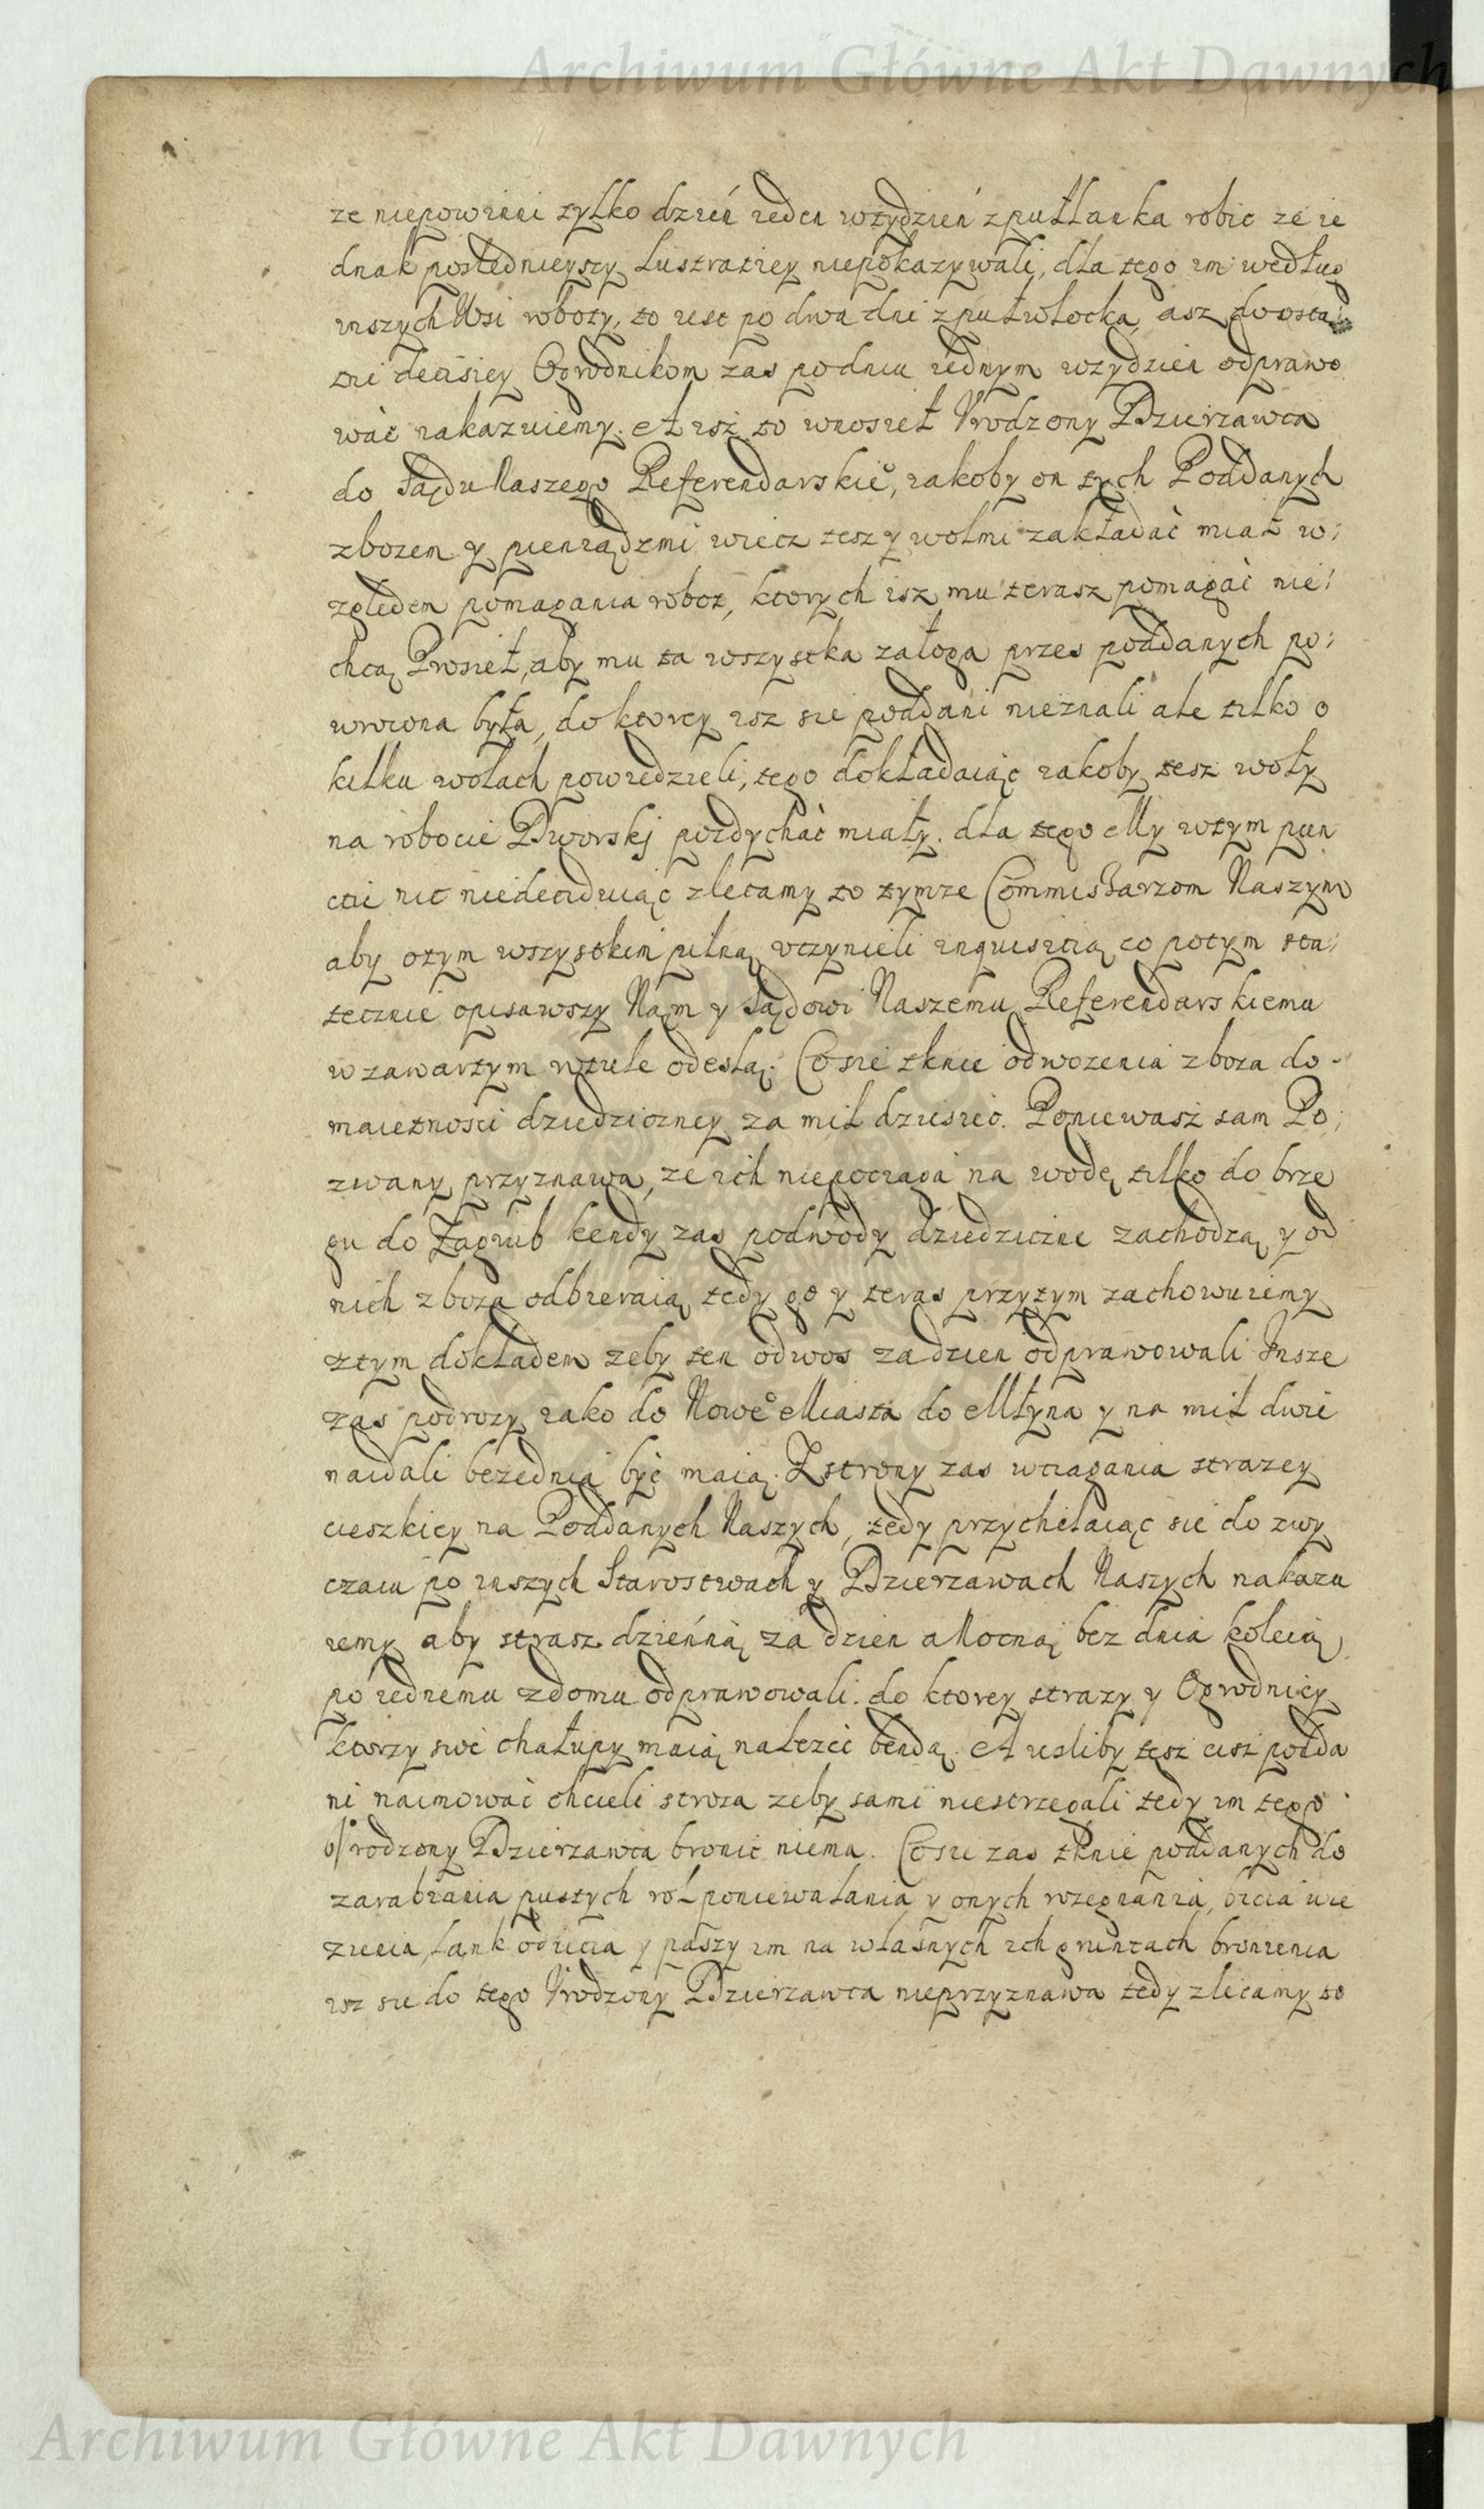 Archiwum Główne Akt Dawnych
ze niepowinni tylko dzień ieden wtydzień zpułłanka robic ze ie
dnak poslednieyszy Lustratiey niepokazywali, dla tego im według
inszych Wsi roboty, to iest po dwa dni z pułwłocka, asz do osta
tni decisiey Ogrodnikom zas po dniu iednym wtydzien odprawo
wać nakazuiemy. A isz to wnosieł Vrodzony Dzierzawca
do Sądu Naszego Referendarskie°, iakoby on tych Poddanych
zbozem y pieniądzmi wiecz tesz y wołmi zakładać miał w:
zględem pomagania robot, ktorych isz mu terasz pomagać nie:
chcą Prosieł, aby mu ta wszystka załoga przes poddanych po:
wrocona była, do ktorey isz sie poddani nieznali ale tilko o
kilku wołach powiedzieli, tego dokładaiąc iakoby tesz woły
na robocie Dworskj pozdychać miały. dla tego My wtym pun
ctie nic niedeciduiąc zlecamy to tymze Commissarzom Naszym
aby otym wszystkim pilną vczynieli inquisitią co potym sta:
tecznie opisawszy Nam y Sądowi Naszemu Referendarskiemu
w zawartym rotule odeslą. Co sie tknie odwozenia zboza do
maietności dziedziczney za mil dziesięc. Poniewasz sam Po:
zwany przyznawa, ze ich niepociąga na wodę tilko do brze
gu do Zagrub kendy zas podwody dziedziczne zachodzą y od
nich zboza odbieraią, tedy go y teras przytym zachowuiemy
ztym dokładem zeby ten odwos za dzien odprawowali Insze
zas podrozy iako do Nowe° Miasta do Młyna y na mil dwie
naidali bezednia być maią. Z strony zas wciągania strazey
cieszkiey na Poddanych Naszych, tedy przychelaiąc sie do zwy
czaiu po inszych Starostwach y Dzierzawach Naszych nakazu
iemy aby strasz dzienną za dzien a Nocną bez dnia kolęią
po iednemu zdomu odprawowali. do ktorey strazy y Ogrodnicy
ktorzy swe chałupy maią nalezeć bendą. A iesliby tesz cisz podda
ni naimować chcieli stroza zeby sami niestrzegali tedy im tego
Vrodzony Dzierzawca bronic niema. Co sie zas tknie poddanych do
zarabiania pustych rol poniewalania y onych rozegnania, bicia wie
zienia, łank odięcia y paszy im na własnych ich gruntach bronienia
isz sie do tego Vrodzony Dzierzawca nieprzyznawa tedy zlecamy to
Archiwum Główne Akt Dawnych